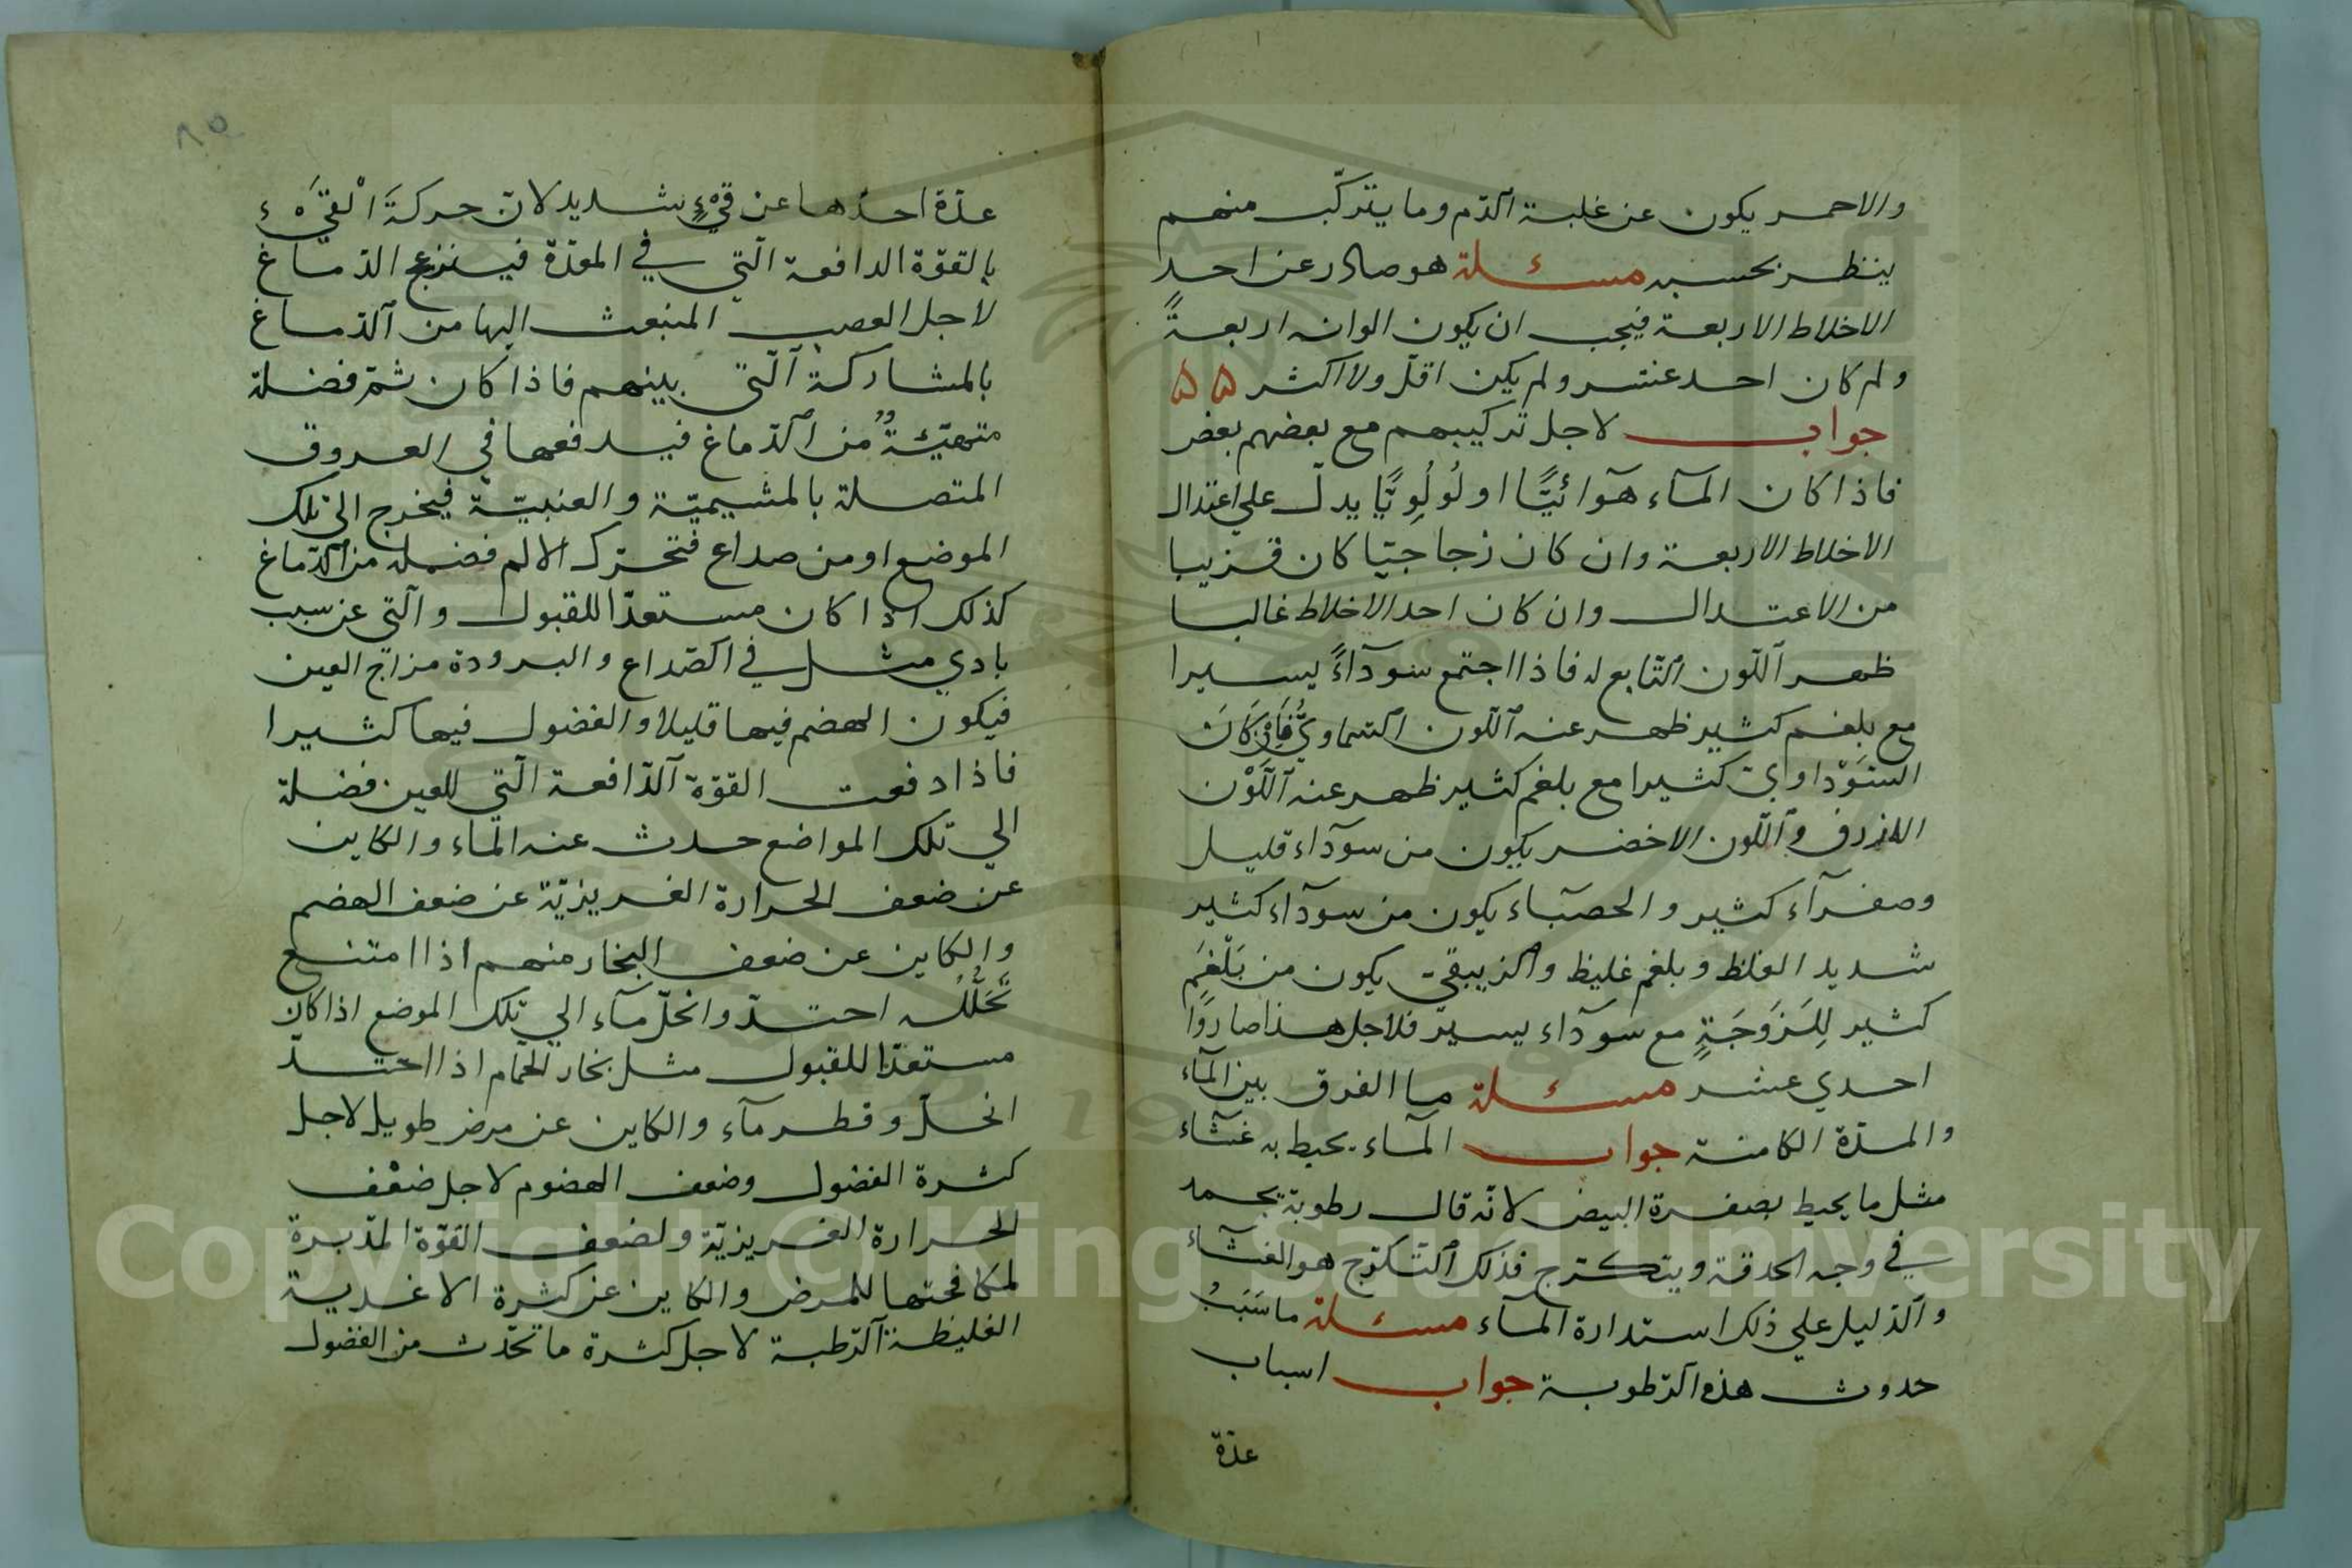 والاحمر يكون عن غلبة الدّم وما يتركّب منهم
ينظر بحسبه مسئلة هو صادر عن احد
الاخلاط الاربعة فيجب ان يكون الوانه اربعةً
ولم كان احد عشر ولم يكن اقلّ ولا اكثر ۵۵
جواب لاجل تركيبهم مع بعضهم بعض
فاذا كان المآء هوآئيًّا او لُولُوِيًّا يدلّ علي اعتدال
الاخلاط الاربعة وان كان زجاجيّا كان قريبا
من الاعتدال وان كان احد الاخلاط غالبا
ظهر اللّون التّابع له فاذا اجتمع سودآءً يسيرا
مع بلغم كثير ظهر عنه اللّون السّماويُّ فَاِنْ كَانَ
السَّوْداويّ كثيرا مع بلغم كثير ظهر عنه اللَّوْن
الازرق واللّون الاخضر يكون من سودآء قليل
وصفرآء كثير والحصبّاء يكون من سودآء كثير
شديد الغلظ وبلغم غليظ والزيبقي يكون من بَلْغَم
كثير لِلَزَوجَةٍ مع سودآء يسير فلاجل هذا صاروًا
احدي عشر مسئلة ما الفرق بين المآء
والمدّة الكامنة جواب المآء يحيط به غشآء
مثل ما يحيط بصفرة البيض لانّه قال رطوبة تجمد
في وجه الحدقة ويتكرّج فذلك التّكرّج هو الغشآء
والدّليل علي ذلك استدارة المآء مسئلة ما سَبَبُ
حدوث هذه الرّطوبة جواب اسباب
عدّة
٨٥
عدّة احدها عن قيْءٍ شديد لانّ حركةَ الْقيَْء
بالقوّة الدافعة الّتي في المعدة فينزعج الدّماغ
لاجل العصب المنبعث اليها من الدّماغ
بالمشاركة الّتي بينهم فاذا كان ثمّ فضلة
متهيّئةٌ من الدّماغ فيدفعها في العروق
المتصلة بالمشيميّة والعنبيّة فيخرج الي تلك
الموضع او من صداع فتحرّك الالم فضلة من الدّماغ
كذلك اذا كان مستعدّا للقبول والّتي عن سبب
بادي مثل في الصّداع والبرودة مزاج العين
فيكون الهضم فيها قليلا والفضول فيها كثيرا
فاذا دفعت القوّة الدّافعة الّتي للعين فضلة
الي تلك المواضع حدث عنه المآء والكاين
عن ضعف الحرارة الغريزيّة عن ضعف الهضم
والكاين عن ضعف البخار منهم اذا امتنع
تَحَلُّلُه احتدّ وانحلّ مآء الي تلك الموضع اذا كان
مستعدّا للقبول مثل بخار الحمّام اذا احتدّ
انحلّ وقطر مآء والكاين عن مرض طويل لاجل
كثرة الفضول وضعف الهضوم لاجل ضعْف
الحرارة الغريزيّة ولضعف القوّة المدّبرة
لمكافحتها للمرض والكاين عن كثرة الاغدية
الغليظة الرّطبة لاجل كثرة ما تحّدث من الفضول
Copyright © King Saud University